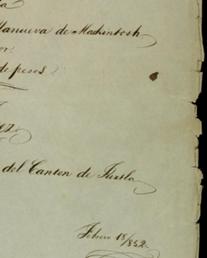 llanueva de Mackintosh
or:
de pesos
ez.
del Canton de Tuxtla
Febrero 18/852